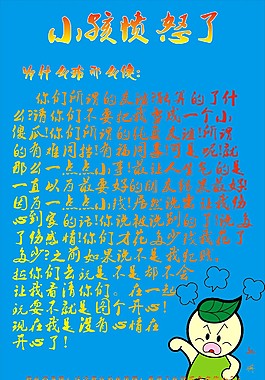 小孩愤怒了
为什么活那么傻:
你们所谓的友谊!就算的了什
么?请你们不要把我当成一个小
傻瓜!你们所谓的纯真友谊!所谓
的有难同当!有福同享!可是呢!就
那么一点点小事!最让人生气的是
一直以为最要好的朋友!结果最好
因为一点点小钱!居然说出让我伤
心到家的话!你说被说别的了!
了伤感情!你们才花多少钱我花了
多少?之前如果说不是我犯贱。
拉你们去玩是不是都不会
让我看清你们。在一起
玩要不就是图个开心!
现在我是没有心情在
开心了!